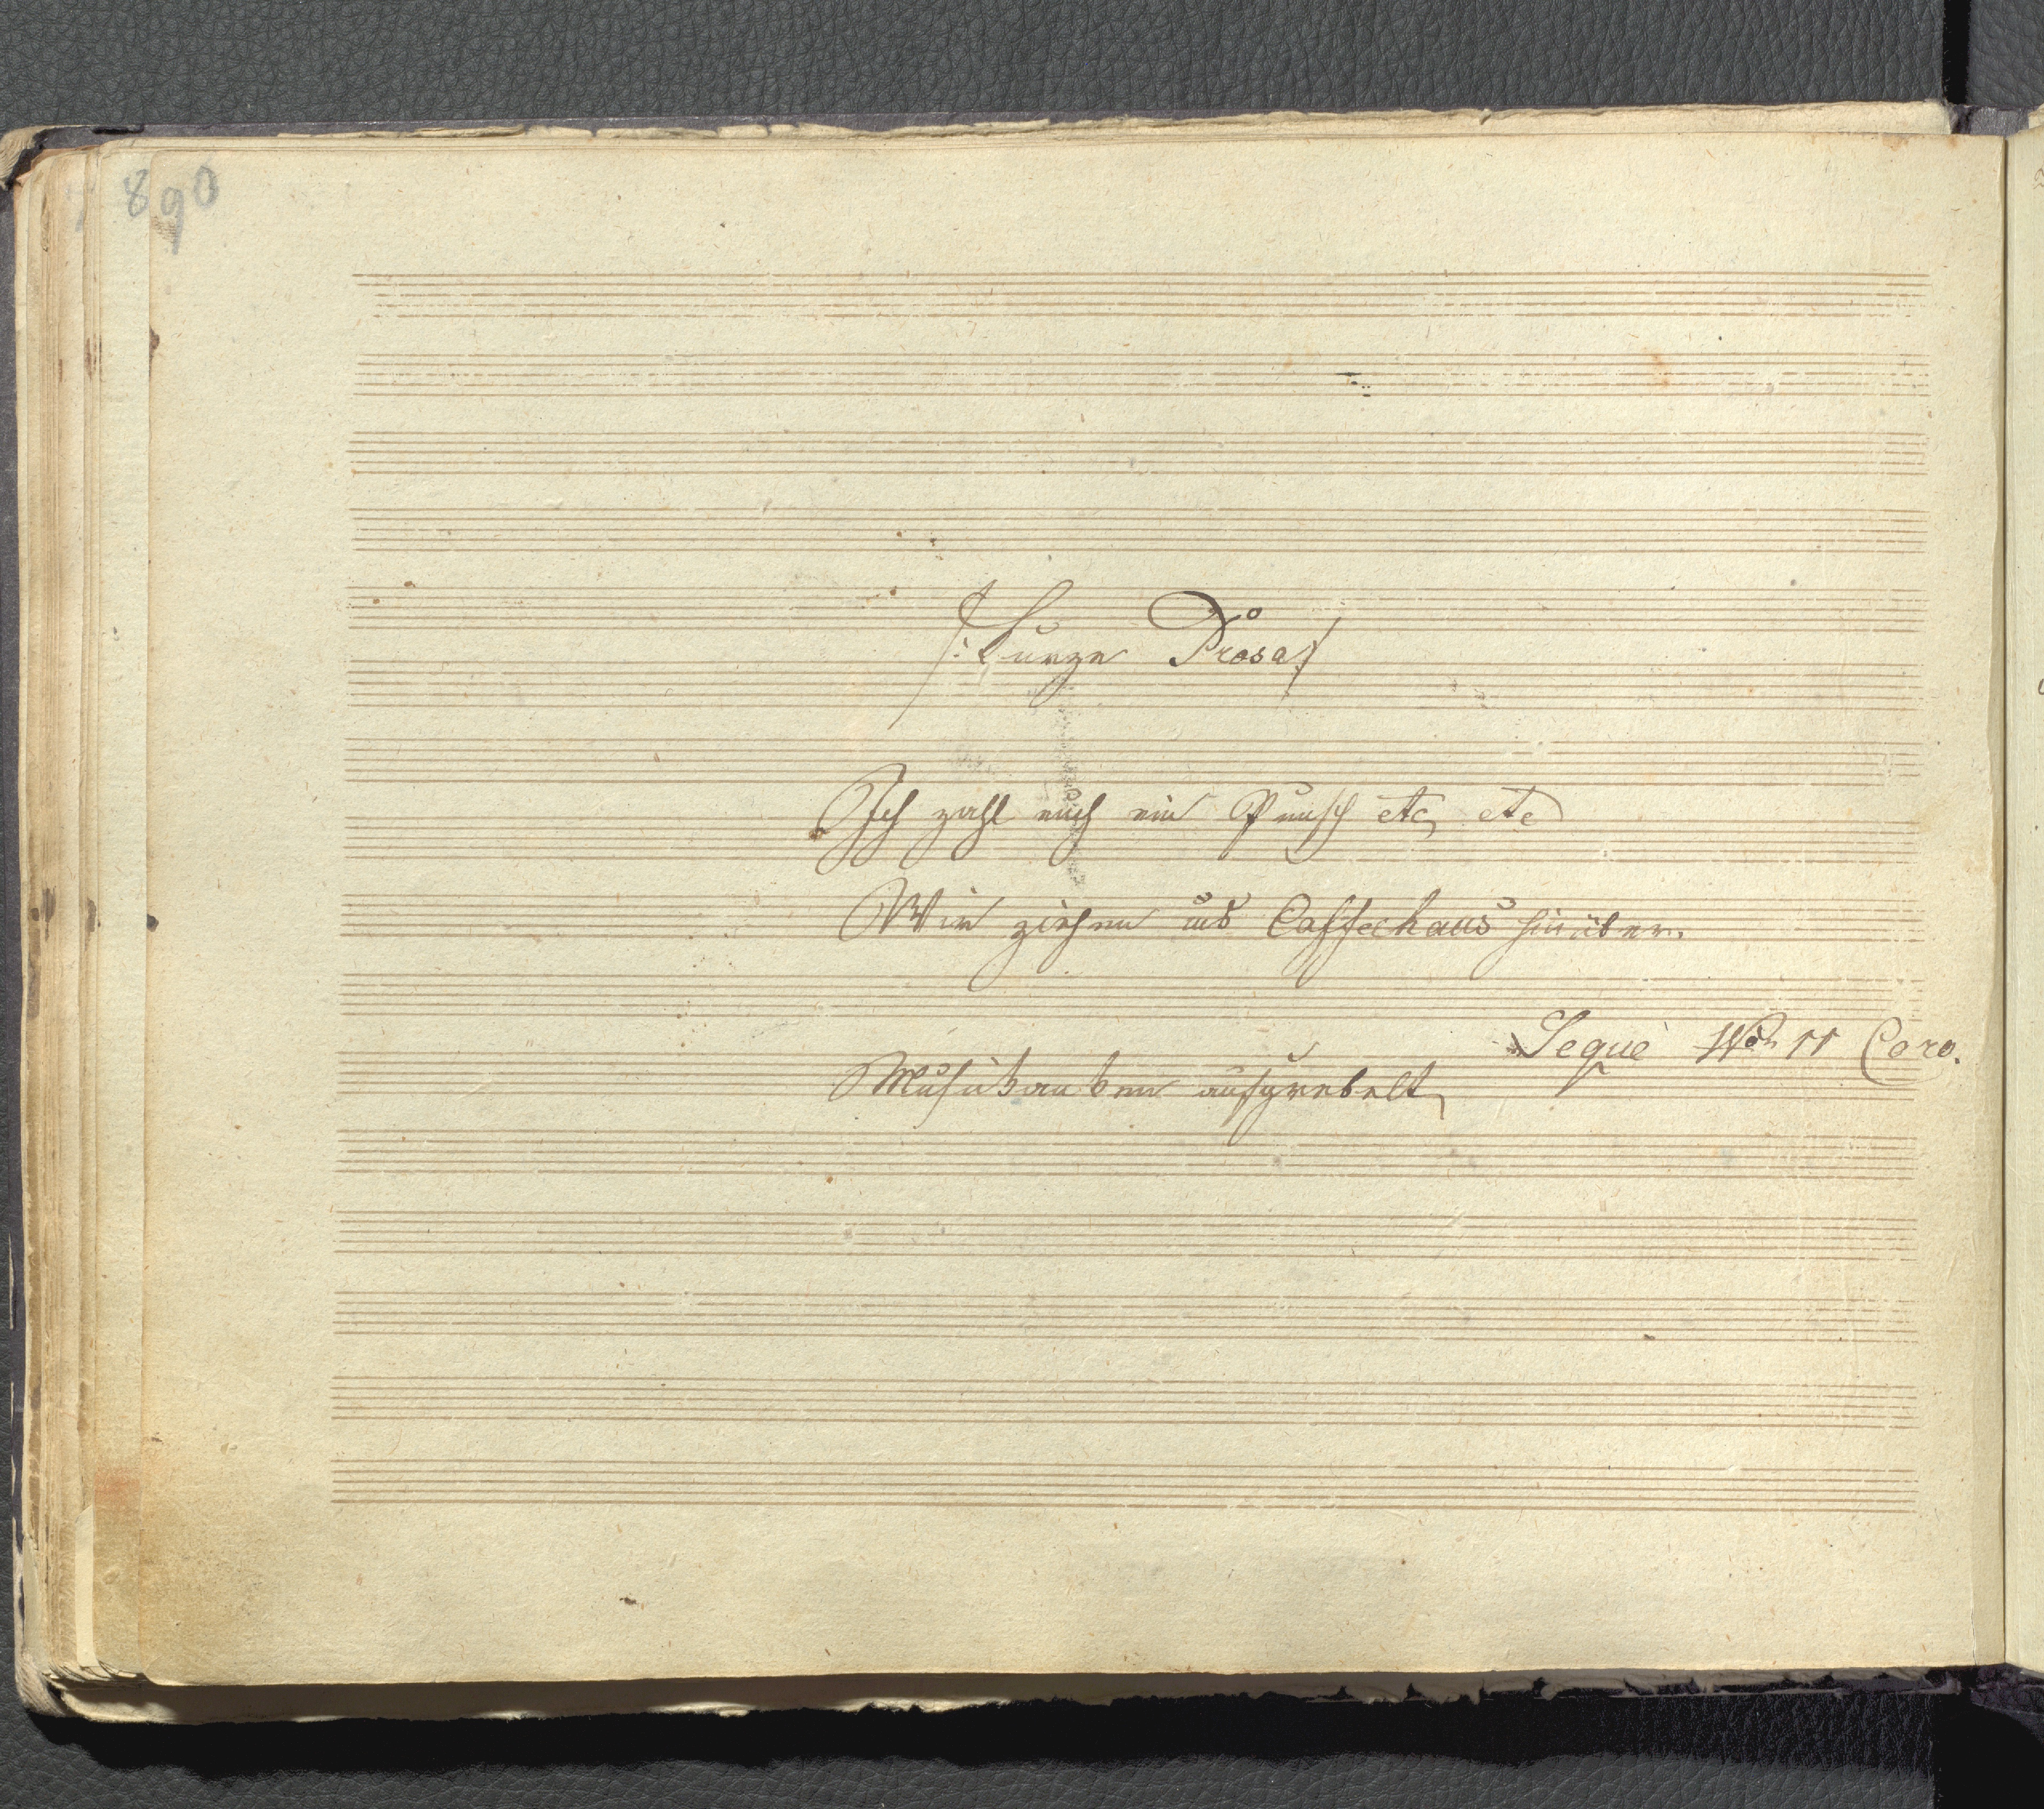 890
/: Kurze Prosa :/
Ich zahl euch ein Punsch etc, etc
Wir ziehen ins Caffeehaus hinüber.
Segue No 11 Coro.
Musikanten aufgrebelt,